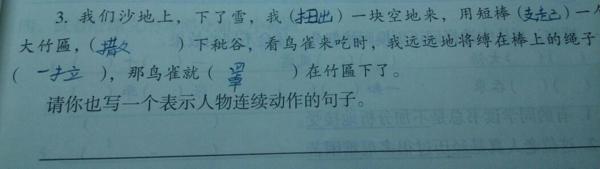 3. 我们沙地上，下了雪，我（扫出）一块空地来，用短棒（支起）一个
大竹匾，（撒）下秕谷，看鸟雀来吃时，我远远地将缚在棒上的绳子
（一拉），那鸟雀就（罩）在竹匾下了。
请你也写一个表示人物连续动作的句子。